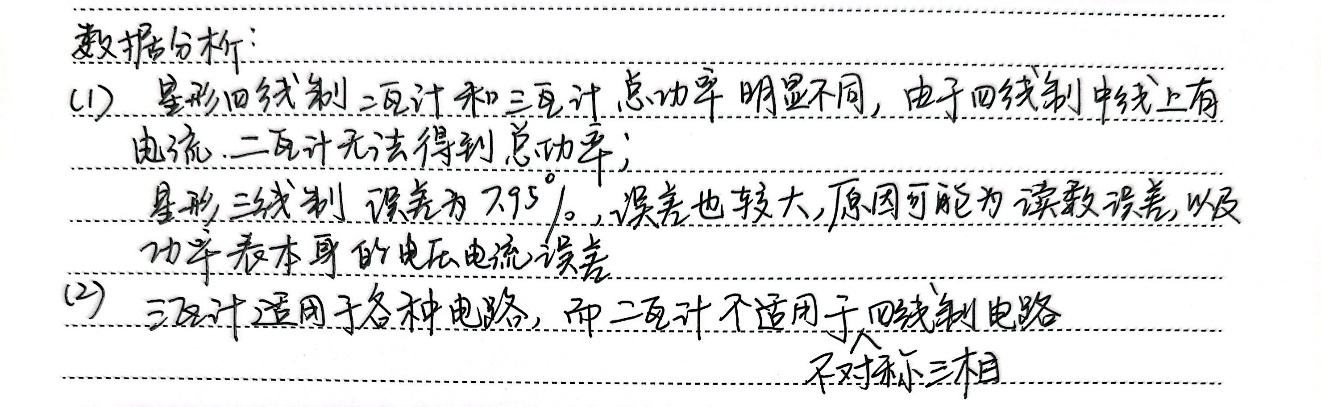 数据分析:
(1) 星形四线制二瓦计和三瓦计总功率明显不同,由于四线制中线上有
电流.二瓦计无法得到总功率;
星形三线制误差为7.95%,误差也较大,原因可能为读数误差,以及
功率表本身的电压电流误差
(2) 三瓦计适用于各种电路,而二瓦计不适用于四线制电路
不对称三相